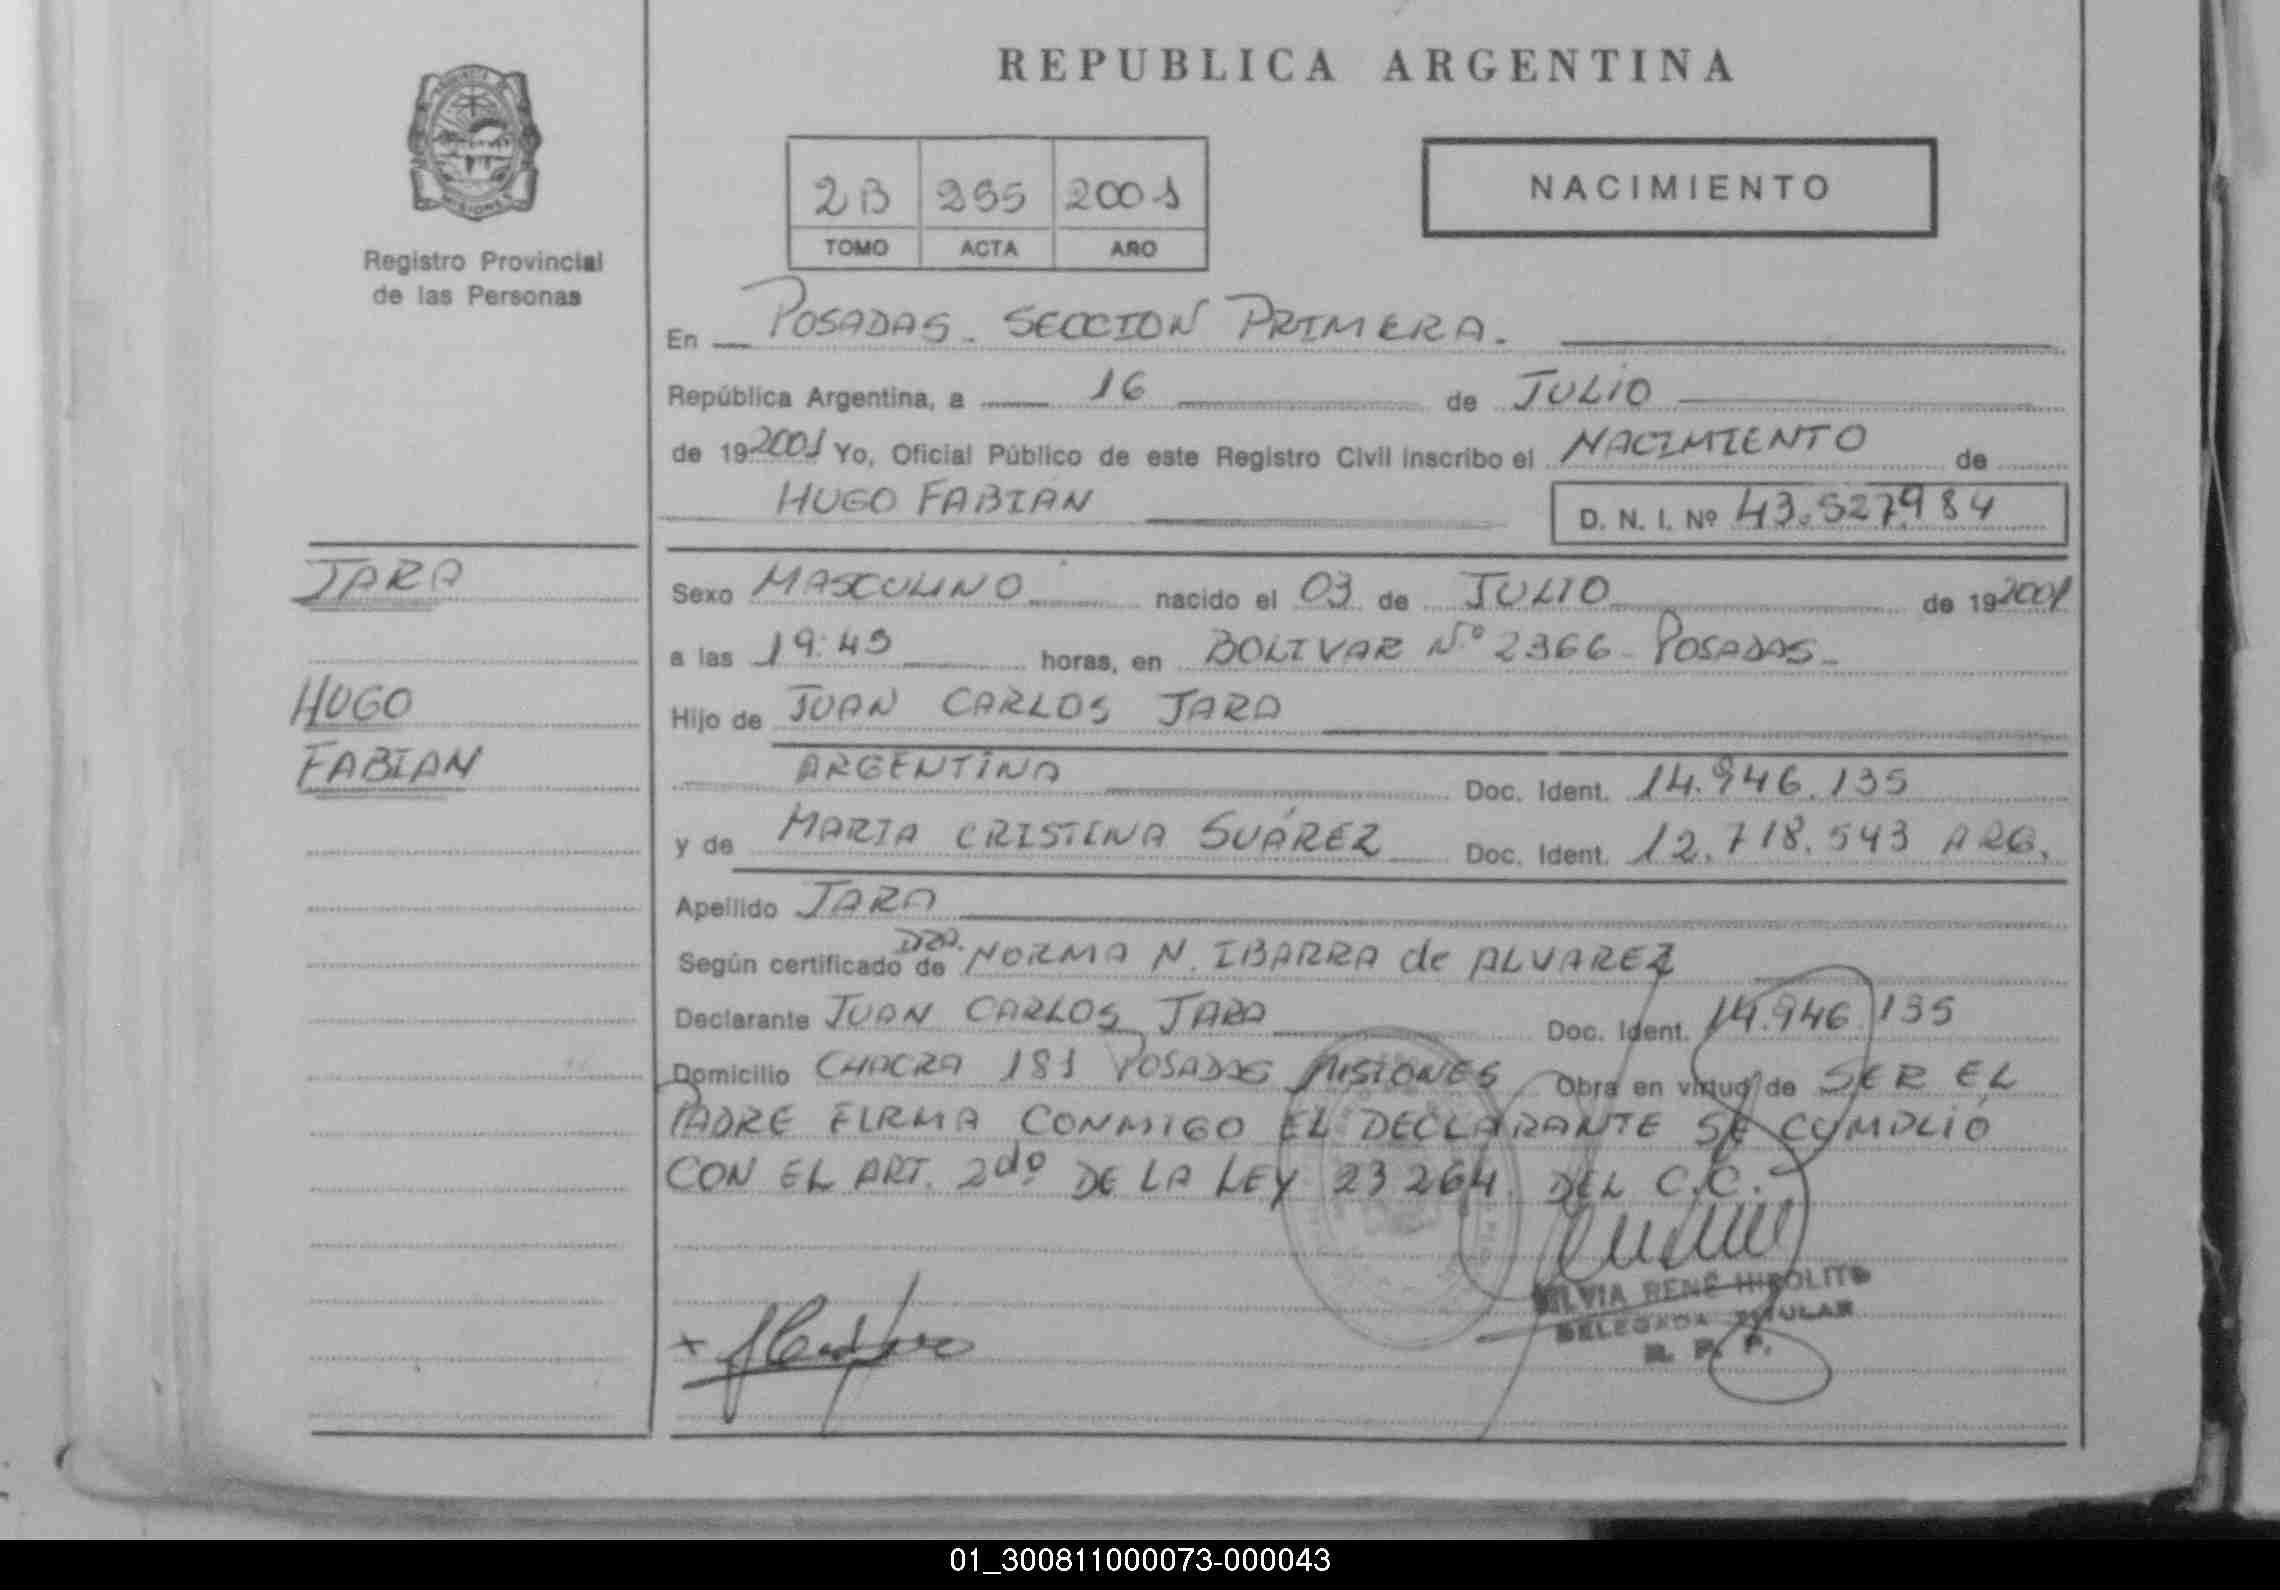 REPUBLICA ARGENTINA
Registro Provincial
de las Personas
2B 295 2001
TOMO ACTA AÑO
NACIMIENTO
En POSADAS. SECCION PRIMERA.
República Argentina, a 16 de JULIO
de 192001 Yo, Oficial Público de este Registro Civil inscribo el NACIMIENTO de
HUGO FABIAN D. N. I. Nº 43.527984
JARA
HUGO
FABIAN
Sexo MASCULINO nacido el 03 de JULIO de 192001
a las 19:45 horas, en BOLIVAR Nº 2366 POSADAS
Hijo de JUAN CARLOS JARA
ARGENTINA Doc. Ident. 14.946.135
y de MARIA CRISTINA SUÁREZ Doc. Ident. 12.718.543 ARG.
Apellido JARA
Según certificado de DRA. NORMA N. IBARRA de ALVAREZ
Declarante JUAN CARLOS JARA Doc. Ident. 14.946.135
Domicilio CHACRA 181 POSADAS MISIONES Obra en virtud de SER EL
PADRE FIRMA CONMIGO EL DECLARANTE SE CUMPLIÓ
CON EL ART. 2do DE LA LEY 23264 DEL C.C.
SILVIA RENÉ HIPOLITO
DELEGADA TITULAR
R. P. P.
01_300811000073-000043